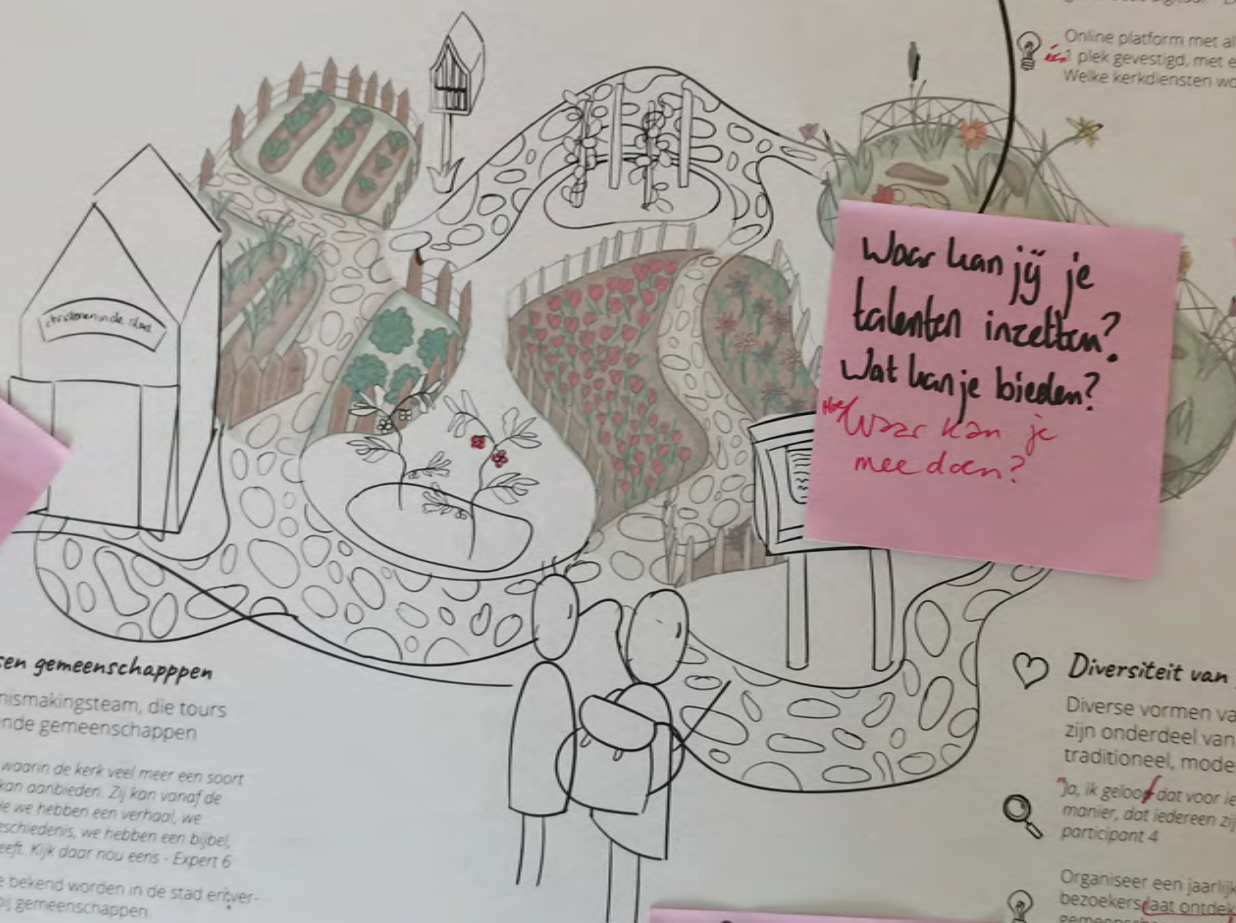 Online platform met al
één 1 plek gevestigd, met e
Welke kerkdiensten wo
christenen in de stad
Waar kan jij je
talenten inzetten?
Wat kan je bieden?
Hoe/Waar kan je
mee doen?
sen gemeenschapppen
nismakingsteam, die tours
ende gemeenschappen
waarin de kerk veel meer een soort
kan aanbieden. Zij kan vanaf de
ie we hebben een verhaal, we
eschiedenis, we hebben een bijbel,
eeft. Kijk daar nou eens - Expert 6
e bekend worden in de stad en ver-
bij gemeenschappen.
Diversiteit van
Diverse vormen va
zijn onderdeel van
traditioneel, mode
"Ja, ik geloof dat voor ie
manier, dat iedereen zij
participant 4
Organiseer een jaarlijk
bezoekers laat ontdek